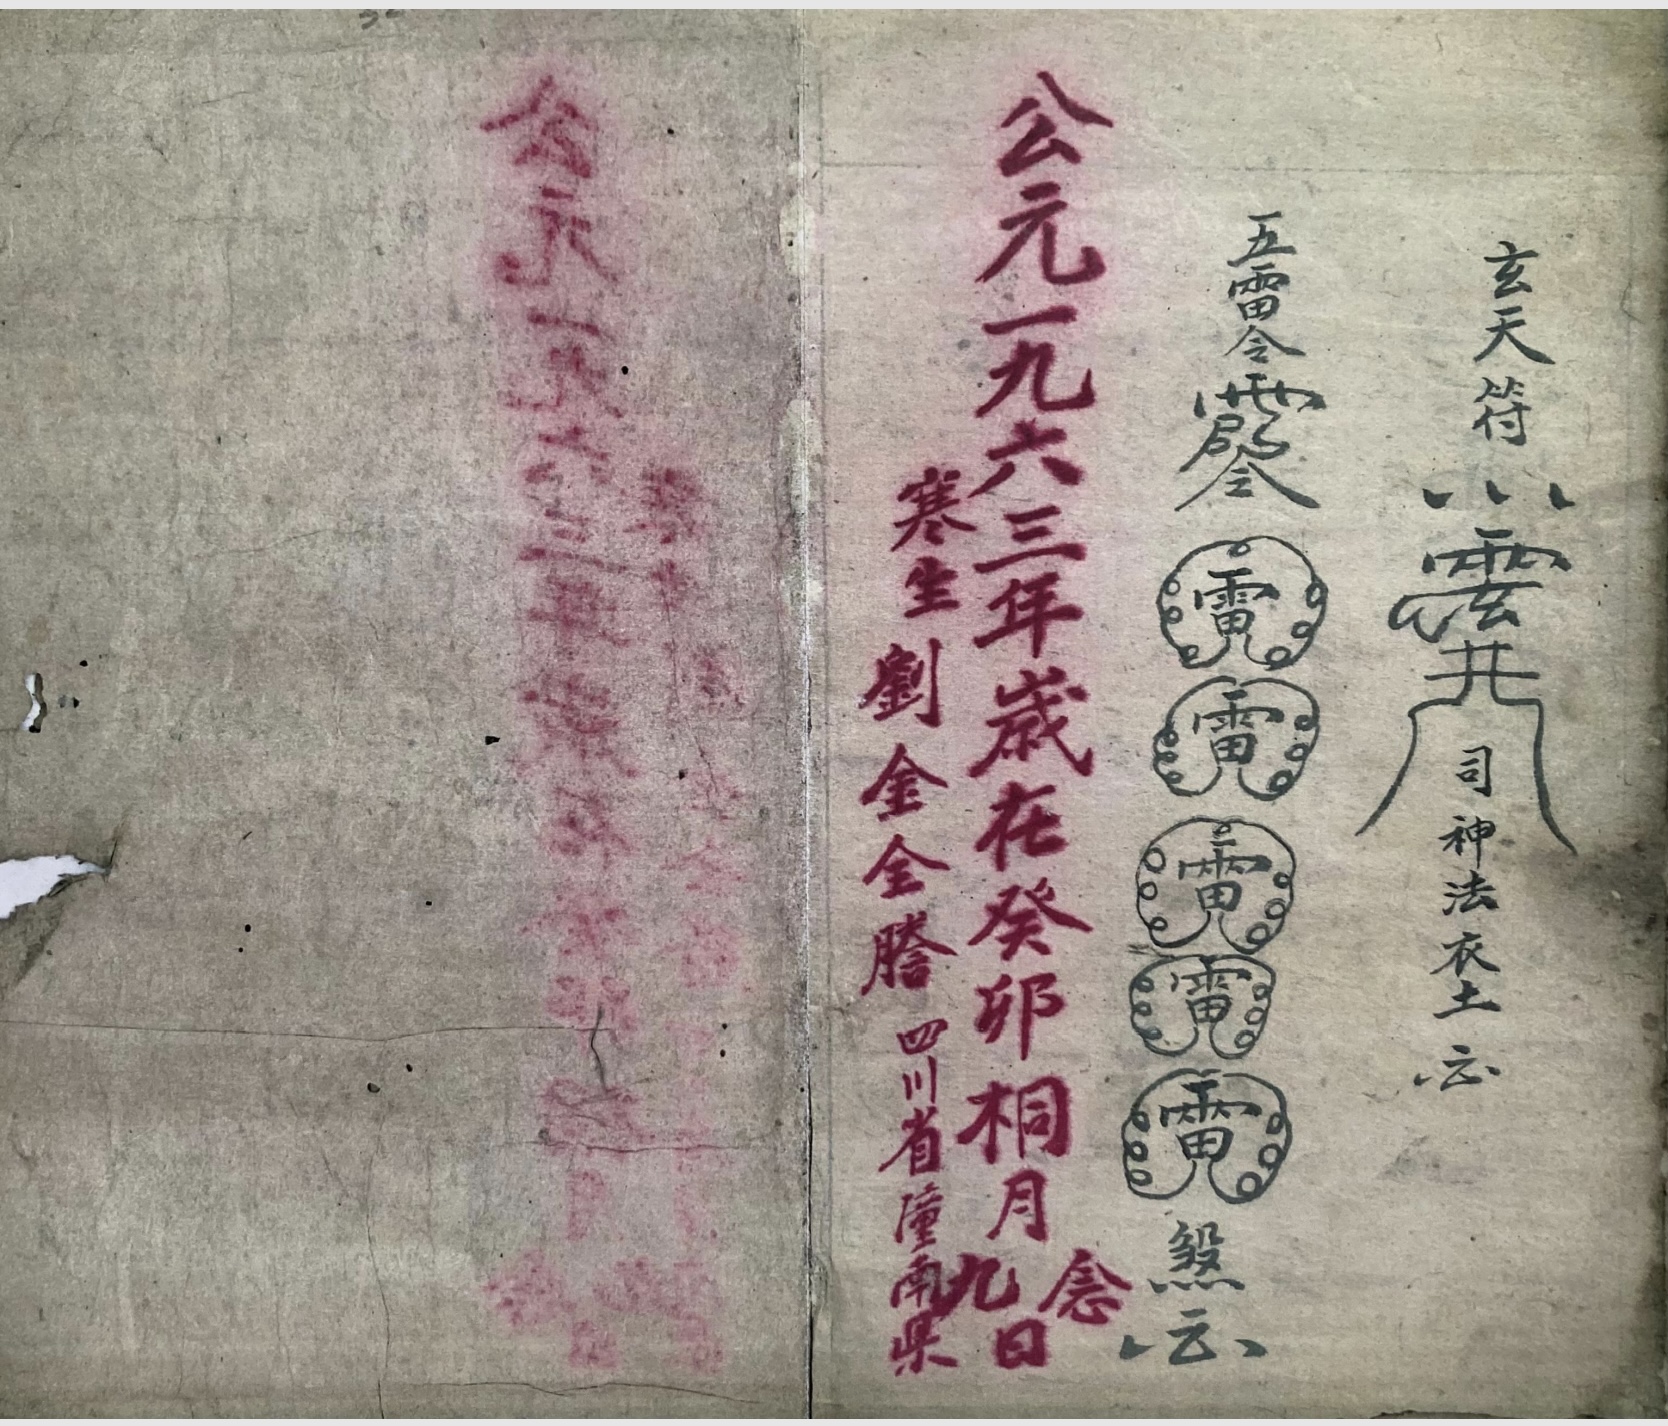 玄天符
雲井
司神法衣土
五雷令
雷
雷
雷
雷
雷
煞
公元一九六三年歲在癸卯桐月念九日
寒生劉金全謄 四川省潼南県